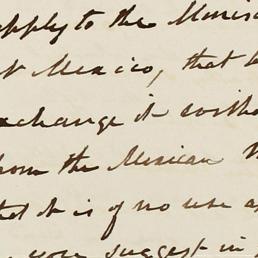 apply to the Minis
Mexico, that
exchange it witho
from the Mexican
that it is of no use a
you suggest in